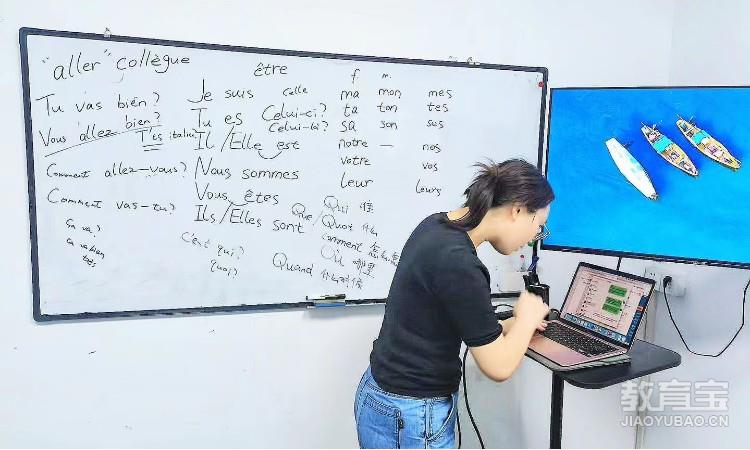 "aller" collègue
Tu vas bien?
Vous allez bien?
T'es italien
Comment allez-vous?
Comment vas-tu?
Ça va?
Ça va bien
être
Je suis
Tu es
Il/Elle est
Nous sommes
Vous êtes
Ils/Elles sont
C'est qui?
quoi?
Celle
Celui-ci?
Celui-là?
f m.
ma mon mes
ta ton tes
sa son ses
notre — nos
votre vos
leur leurs
Qui 谁
Que/Quoi 什么
Comment 怎么
Où 哪里
Quand 什么时候
教育宝
JIAOYUBAO.CN